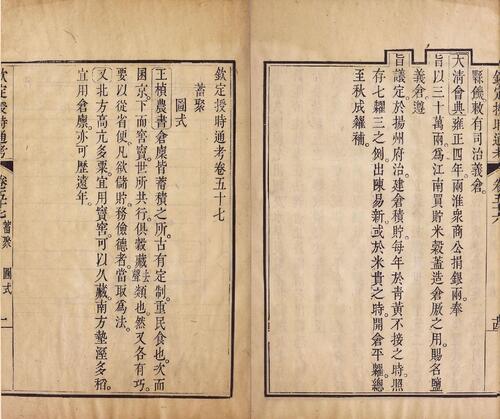 欽定授時通考
卷五十六
縣僟敕有司治義倉。
大清會典雍正四年。兩淮衆商公捐銀兩。奉
旨。以三十萬兩。爲江南買貯米穀蓋造倉厫之用。賜名鹽
義倉。遵
旨議定於揚州府治建倉積貯。每年於靑黃不接之時。照
存七糶三之例。出陳易新。或於米貴之時。開倉平糶。總
至秋成糴補。
欽定授時通考卷五十七
蓄聚
圖式
王楨農書。倉廩皆蓄積之所。古有定制。重民食也。次而
囷京。下而窖竇。世所共行。俱穀藏去聲類也。然又各有巧
要。以從省便。凡欲儲貯。務儉德者。當取爲法。
又北方高亢多粟。宜用竇窖。可以久藏。南方墊溼多稻。
宜用倉廩。亦可歷遠年。
欽定授時通考
卷五十七 蓄聚 圖式 一